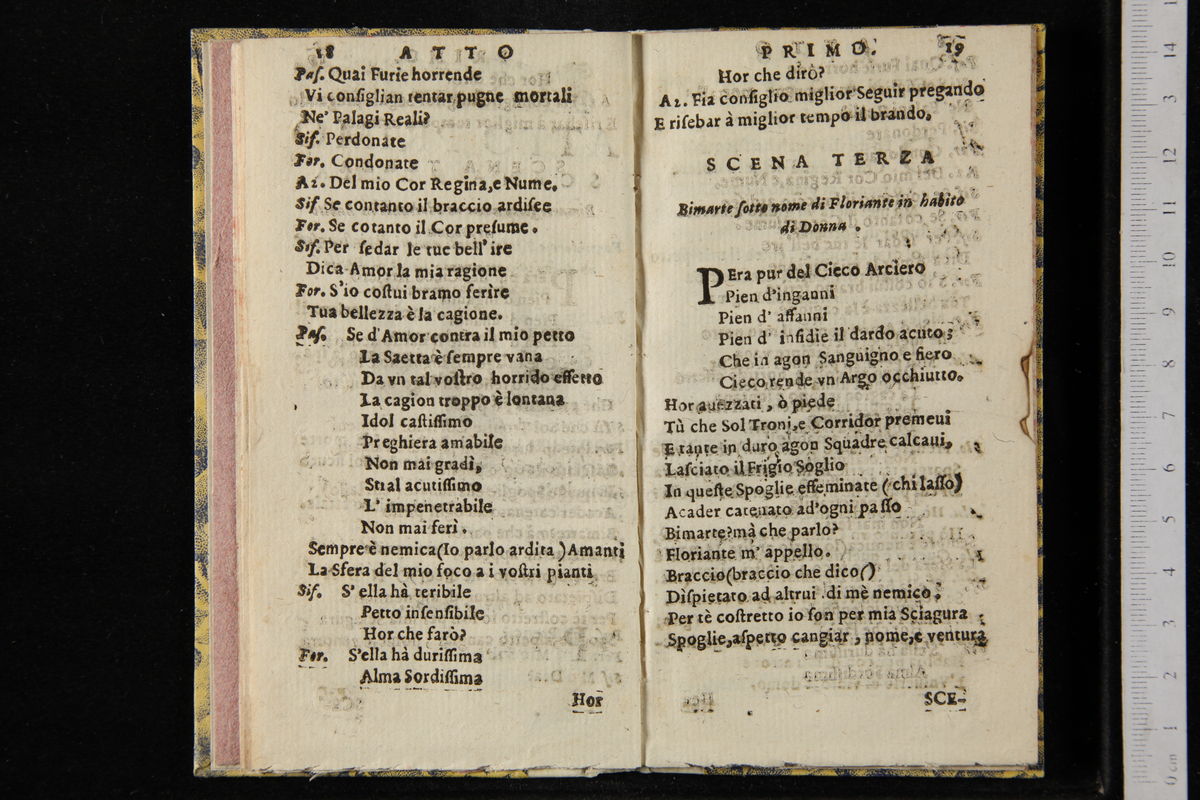 18 ATTO
Paſ. Quai Furie horrende
Vi conſiglian tentar pugne mortali
Ne' Palagi Reali?
Sif. Perdonate
For. Condonate
Az. Del mio Cor Regina, e Nume.
Sif Se contanto il braccio ardiſce
For. Se cotanto il Cor preſume.
Sif. Per ſedar le tue bell' ire
Dica Amor la mia ragione
For. S'io coſtui bramo ferire
Tua bellezza è la cagione.
Paſ. Se d'Amor contra il mio petto
La Saetta è ſempre vana
Da vn tal voſtro horrido effetto
La cagion troppo è lontana
Idol caſtiſſimo
Preghiera amabile
Non mai gradì,
Stral acutiſſimo
L' impenetrabile
Non mai ferì.
Sempre è nemica (Io parlo ardita) Amanti
La Sfera del mio foco a i voſtri pianti
Sif. S'ella hà teribile
Petto inſenſibile
Hor che farò?
For. S'ella hà duriſſima
Alma Sordiſſima
Hor
PRIMO. 19
Hor che dirò?
Az. Fia conſiglio miglior Seguir pregando
E riſebar à miglior tempo il brando.
SCENA TERZA
Bimarte ſotto nome di Floriante in habito
di Donna.
PEra pur del Cieco Arciero
Pien d'inganni
Pien d' affanni
Pien d' inſidie il dardo acuto;
Che in agon Sanguigno e fiero
Cieco rende vn Argo occhiutto.
Hor auezzati, ò piede
Tù che Sol Troni, e Corridor premeui
E tante in duro agon Squadre calcaui,
Laſciato il Frigio Soglio
In queſte Spoglie effeminate (chi laſſo)
A cader catenato ad'ogni paſſo
Bimarte? mà che parlo?
Floriante m' appello.
Braccio (braccio che dico()
Diſpietato ad altrui di mè nemico;
Per tè coſtretto io ſon per mia Sciagura
Spoglie, aſpetto cangiar, nome, e ventura
SCE-